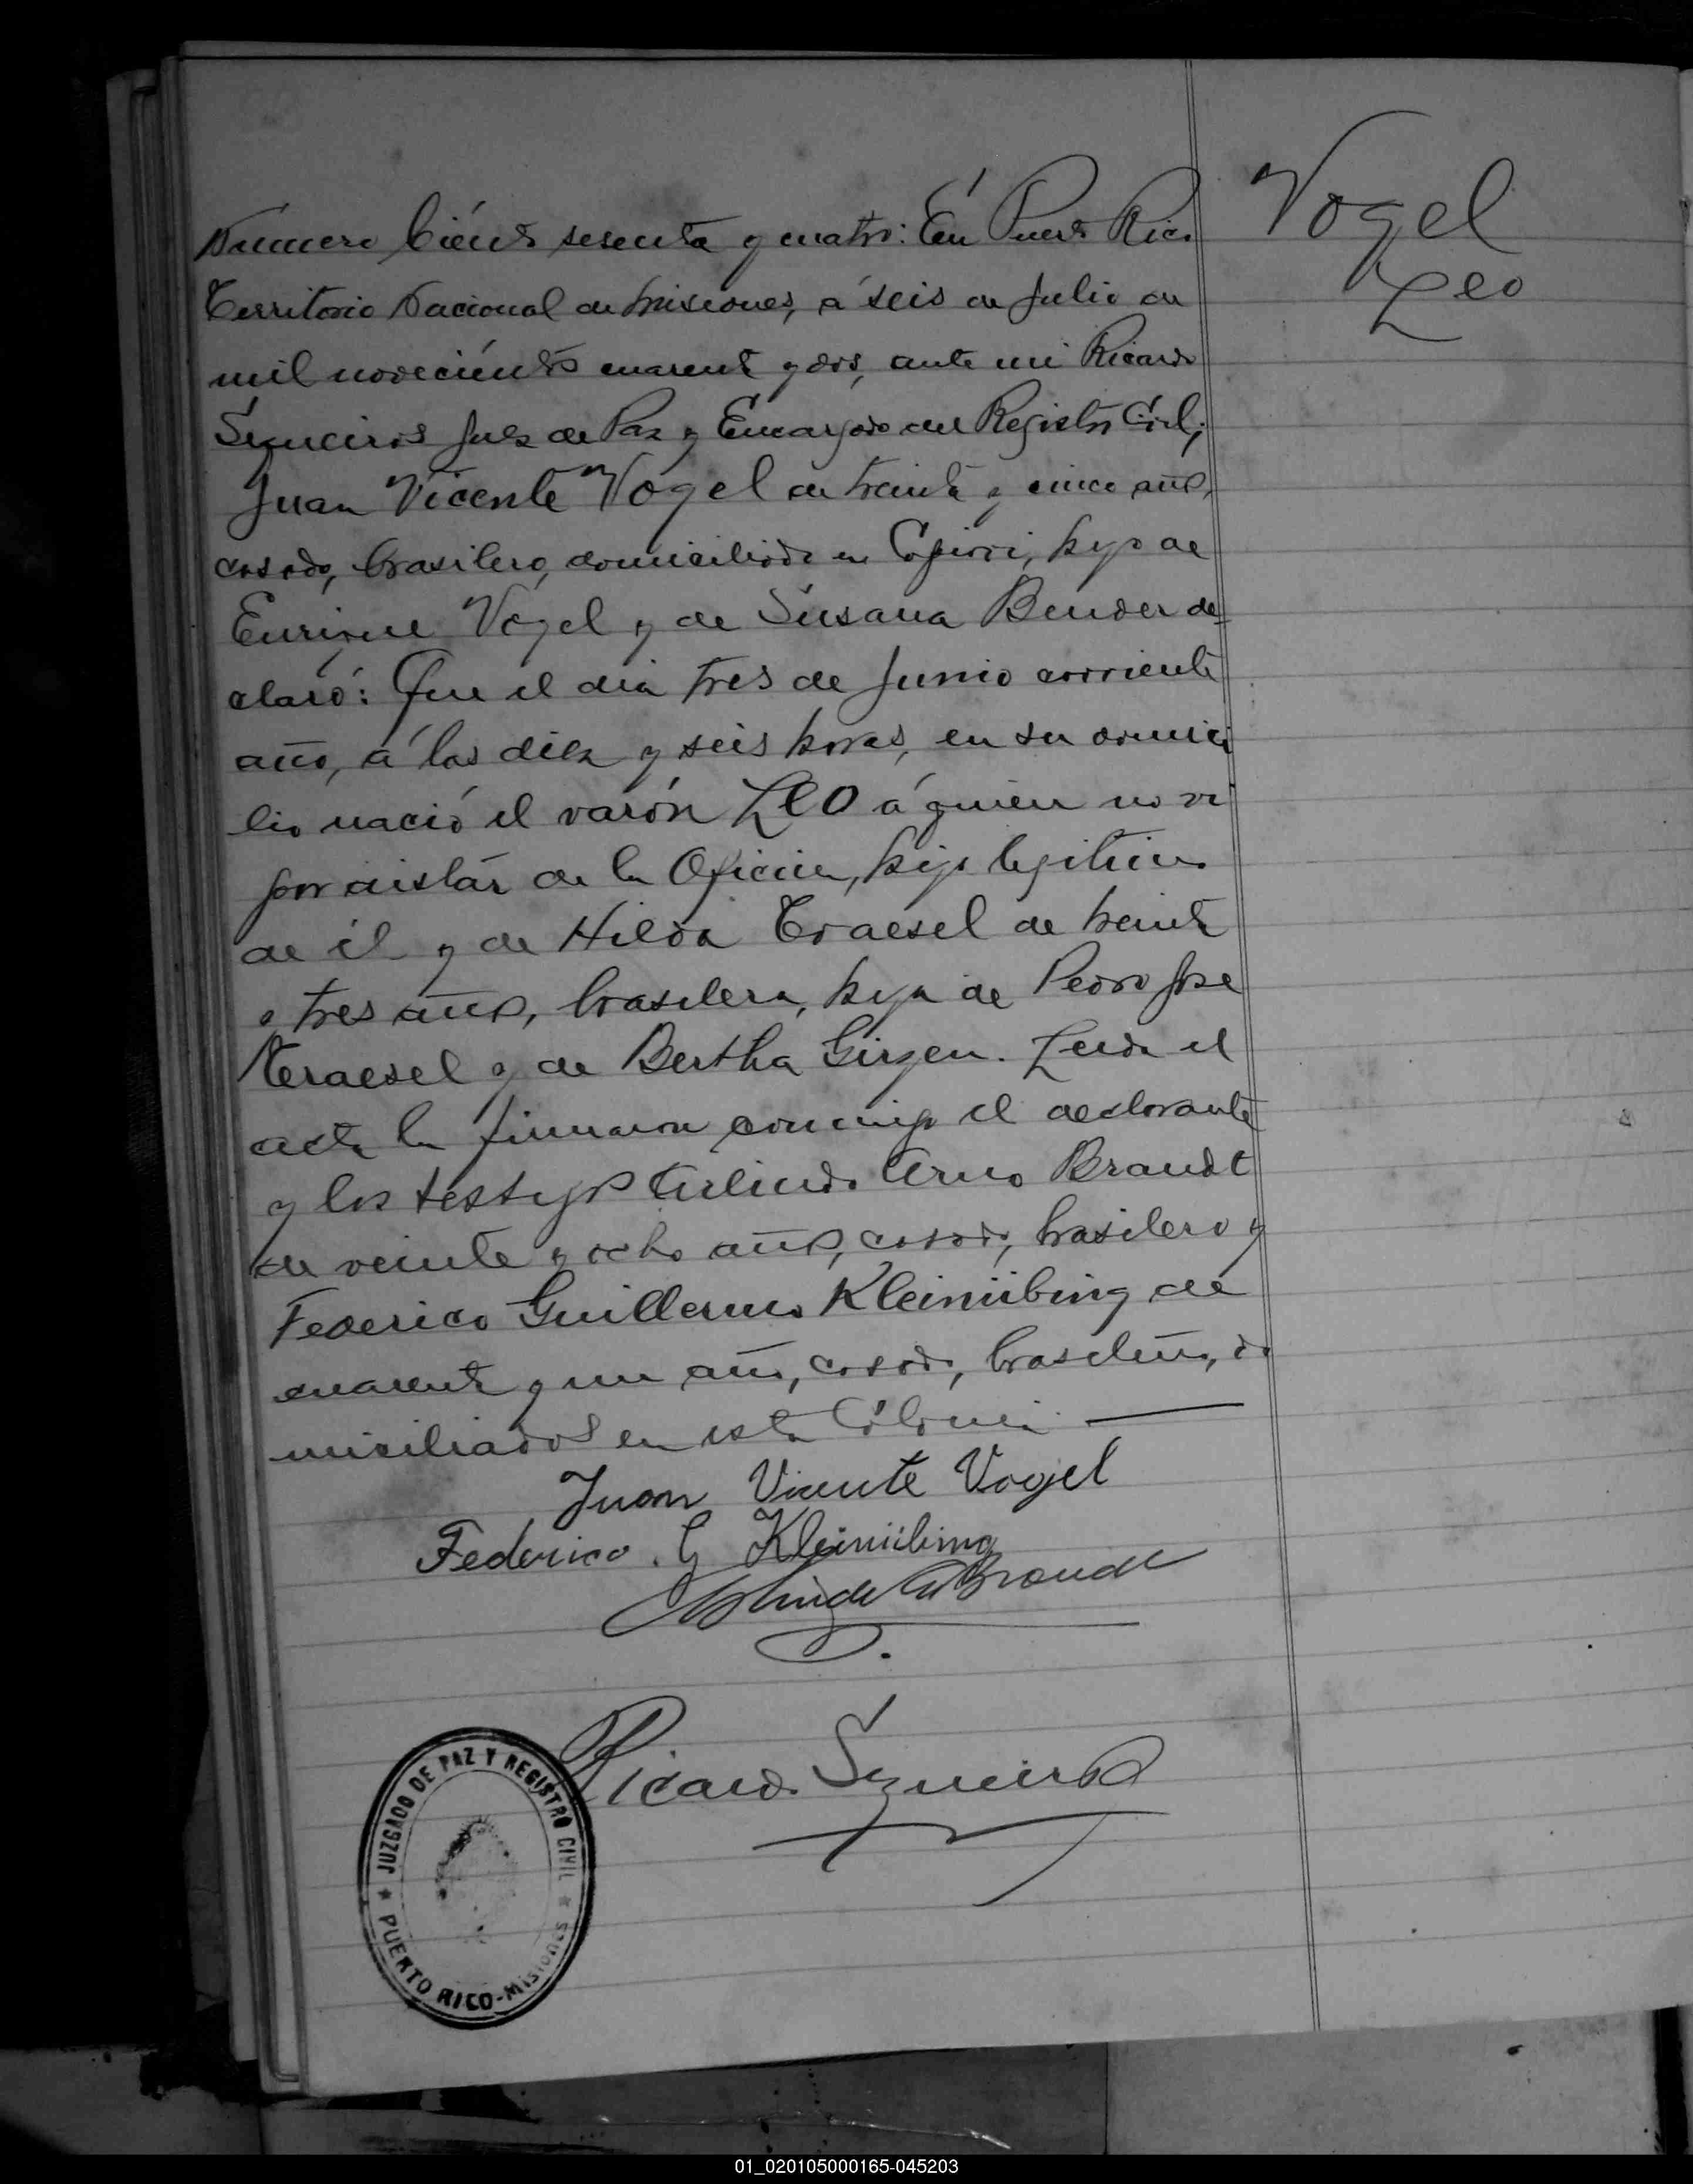 Vogel
Leo
Número Ciénto sesenta y cuatro: En Puerto Rico
Territorio Nacional de Misiones, á seis de Julio de
mil noveciéntos cuarenta y dos, ante mi Ricardo
Sequeiros Juez de Paz y Encargado del Registro Civil,
Juan Vicente Vogel de treinta y cinco años,
casado, brasilero, domiciliado en Capioví, hijo de
Enrique Vogel y de Susana Bender de=
claró: Que el dia tres de Junio corriente
año, á las diez y seis horas, en su domici
lio nació el varón LEO á quien no vi
por distár de la Oficina, hijo legitimo
de él y de Hilda Traesel de treinta
y tres años, brasilera, hija de Pedro José
Traesel y de Bertha Girzen. Leida el
acta la firmaron conmigo el declarante
y los testigos Arlindo Arno Brandt
de veinte y ocho años, casado, brasilero y
Federico Guillermo Kleinübing de
cuarenta y un años, casado, brasileño, do
miciliados en esta Colonia
Juan Vicente Vogel
Federico G Kleinübing
Arlindo A Brandt
Ricardo Sequeiros
JUZGADO DE PAZ Y REGISTRO CIVIL
PUERTO RICO-MISIONES
01_020105000165-045203